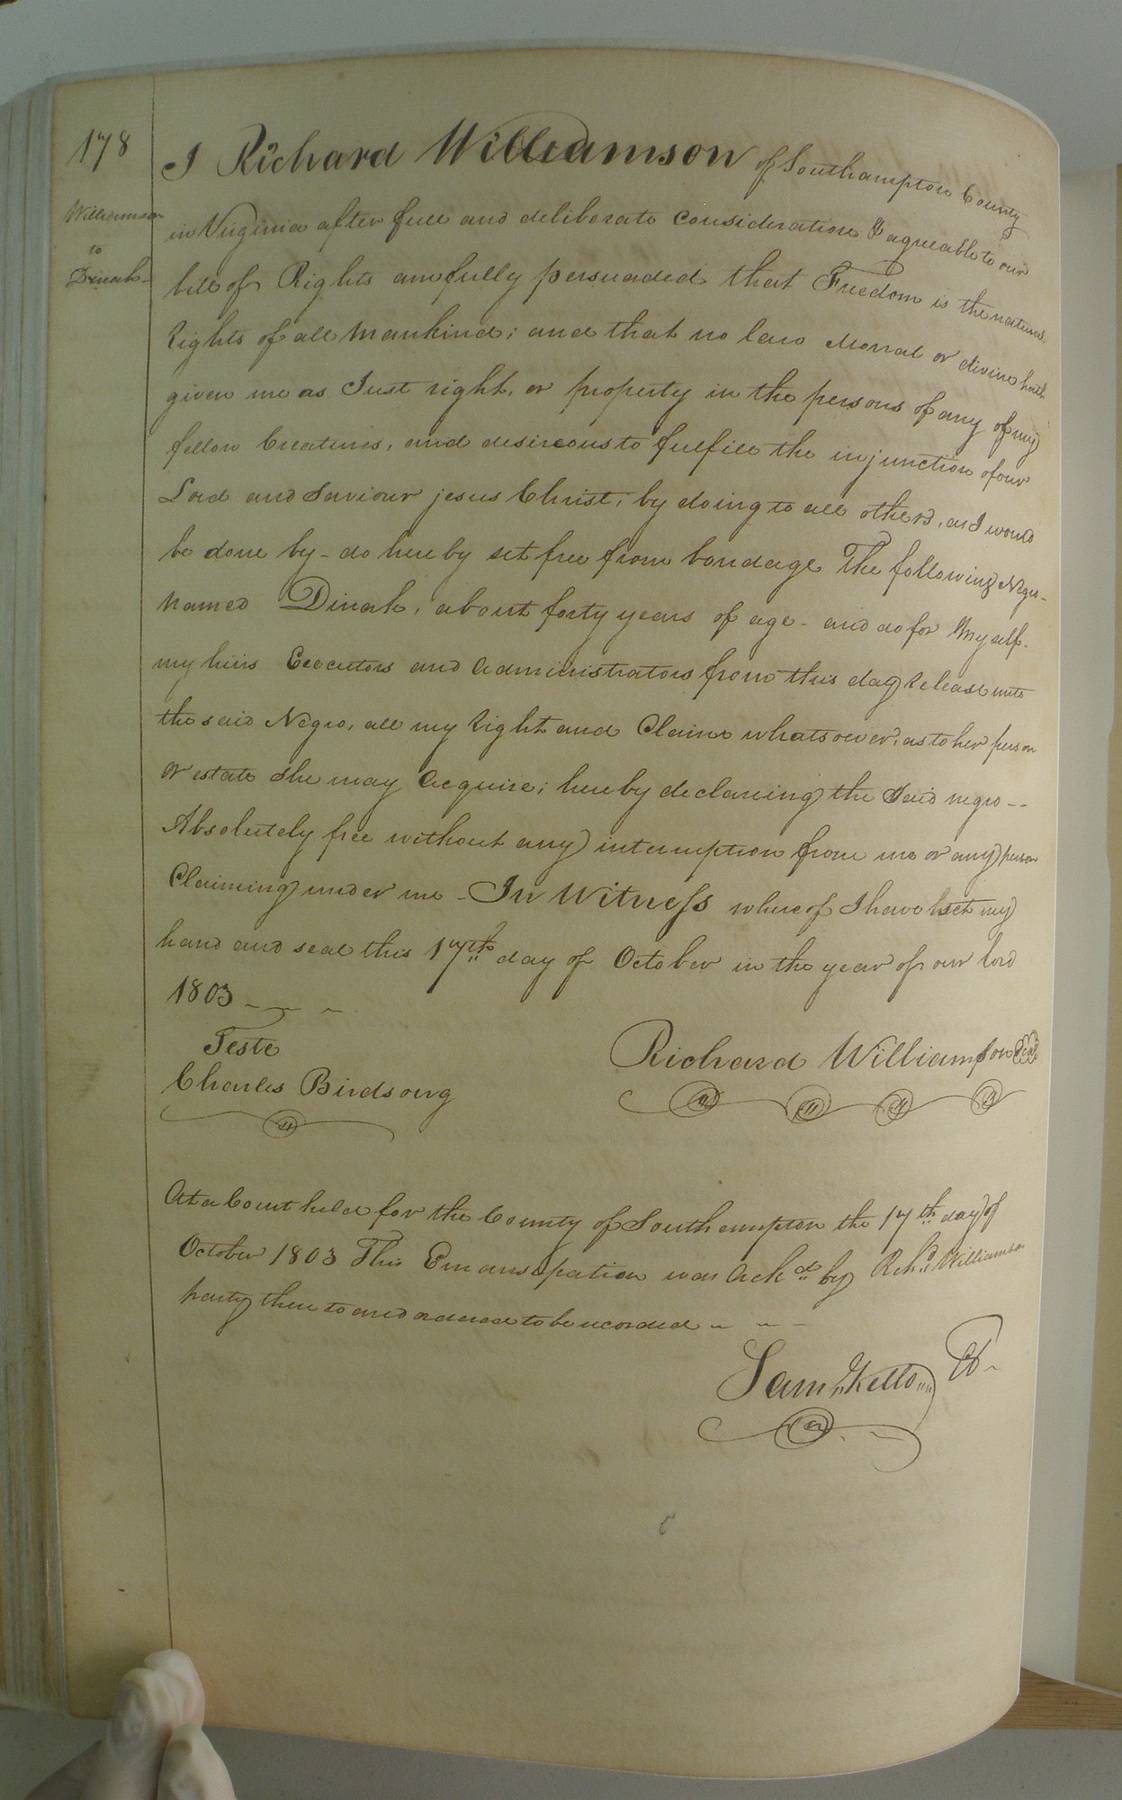 178
Williamson
to
Dinah
I Richard Williamson of Southampton County
in Virginia after full and deliberate consideration & agreeable to our
bill of Rights am fully persuaded that Freedom is the natural
Rights of all mankind; and that no law Morral or divine hath
given me as Just right, or property in the persons of any of my
fellow Creatures, and desireous to fulfill the injunction of our
Lord and Saviour jesus Christ; by doing to all others, as I would
be done by - do hereby set free from bondage The following Negro -
Named Dinah, about forty years of age - and do for Myself -
my heirs Executors and administrators from this day Release unto
the said Negro, all my Right and Claime whatsoever, as to her person
or estate she may acquire; hereby declareing the Said negro - -
Absolutely free without any interruption from me or any person
Claiming under me - In Witness whereof I have set my
hand and seal this 17th day of October in the year of our lord
1803
Teste
Richard Williamson Seal
Charles Birdsong
At a Court held for the County of Southampton the 17th day of
October 1803 This Emanscipation was Ackd by Richd Williamson
party thereto and ordered to be recorded
Saml Kello Ct